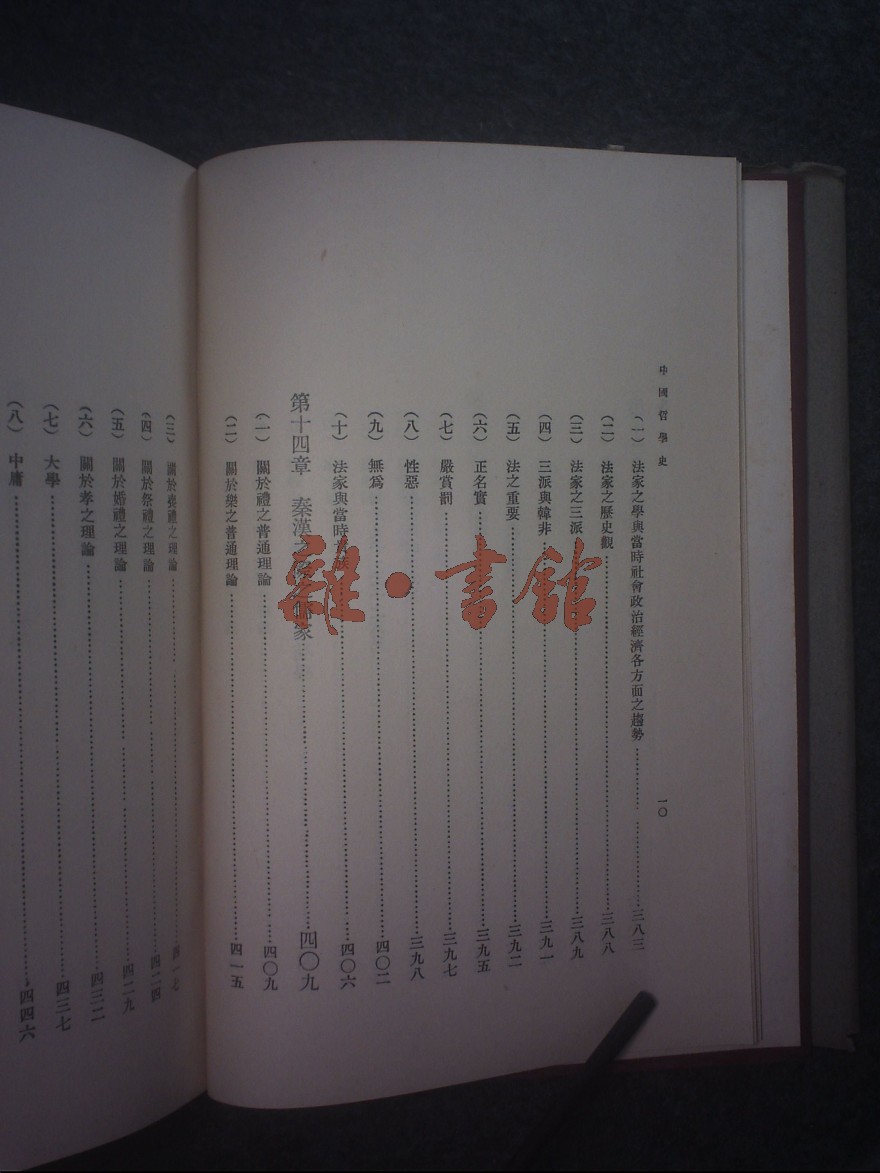 中國哲學史
一〇
(一) 法家之學與當時社會政治經濟各方面之趨勢……三八三
(二) 法家之歷史觀……三八八
(三) 法家之三派……三八九
(四) 三派與韓非……三九一
(五) 法之重要……三九二
(六) 正名實……三九五
(七) 嚴賞罰……三九七
(八) 性惡……三九八
(九) 無爲……四〇二
(十) 法家與當時貴族……四〇六
第十四章 秦漢之際之儒家……四〇九
(一) 關於禮之普通理論……四〇九
(二) 關於樂之普通理論……四一五
(三) 關於喪禮之理論……四一七
(四) 關於祭禮之理論……四二四
(五) 關於婚禮之理論……四二九
(六) 關於孝之理論……四三二
(七) 大學……四三七
(八) 中庸……四四六
雜·書館